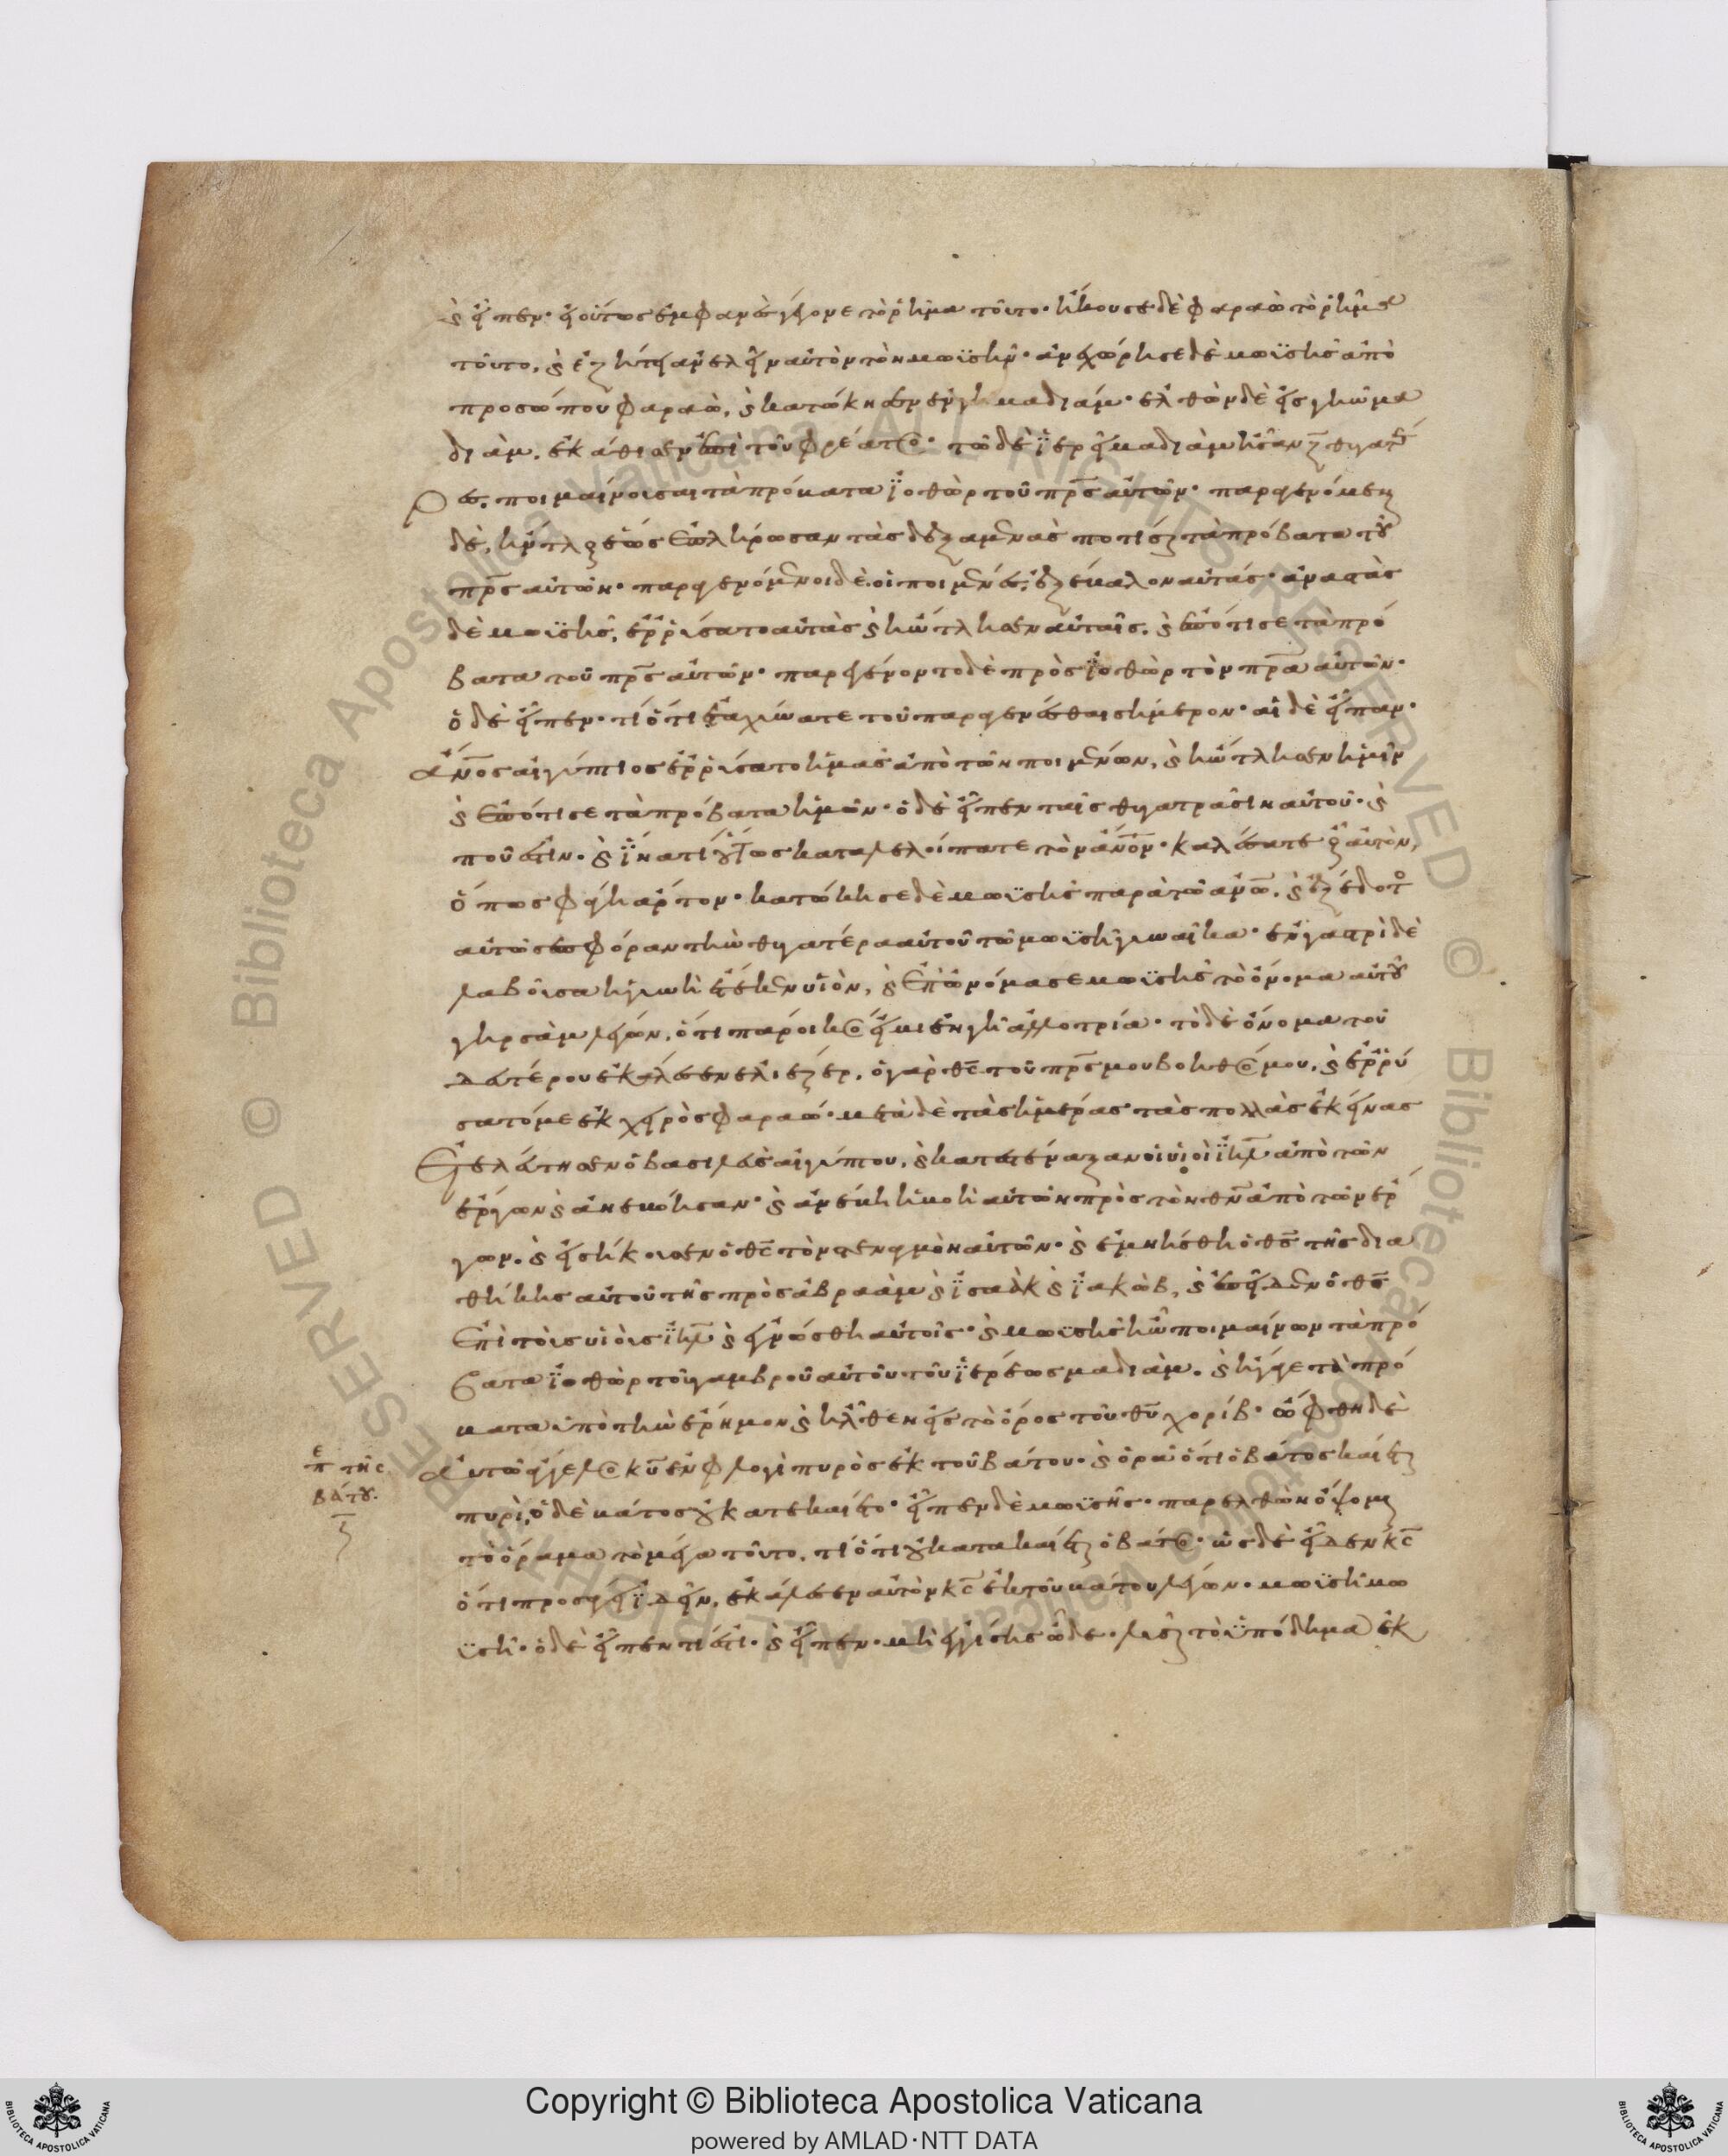 καὶ εἶπεν· εἰ οὕτως ἐμφανὲς γέγονε τὸ ῥῆμα τοῦτο· ἤκουσε δὲ φαραὼ τὸ ῥῆμα
τοῦτο, καὶ ἐζήτει ἀνελεῖν αὐτὸν τὸν μωϊσῆν· ἀνεχώρησε δὲ μωϊσῆς ἀπὸ
προσώπου φαραὼ, καὶ κατώκησεν ἐν γῆ μαδιάμ· ἐλθὼν δὲ εἰς γῆν μα
διὰμ, ἐκάθισεν ἐπὶ τοῦ φρέατος· τῶ δὲ ἱερεῖ μαδιὰμ ἦσαν ζ θυγατέ
ρες, ποιμαίνουσαι τὰ πρόβατα ἰοθὼρ τοῦ πρς αὐτῶν· παραγενόμεναι
δὲ, ἤντλουν ἕως ἔπλησαν τὰς δεξαμενὰς ποτίσαι τὰ πρόβατα τοῦ
πρς αὐτῶν· παραγενόμενοι δὲ οἱ ποιμένες, ἐξέβαλον αὐτάς· ἀναστὰς
δὲ μωϊσῆς, ἐρρύσατο αὐτὰς καὶ ἤντλησεν αὐταῖς, καὶ ἐπότισε τὰ πρό
βατα τοῦ πρς αὐτῶν· παρεγένοντο δὲ πρὸς ἰοθὼρ τὸν πρα αὐτῶν·
ὁ δὲ εἶπεν· τί ὅτι ἐταχύνατε τοῦ παραγενέσθαι σήμερον· αἱ δὲ εἶπαν·
ἄνος αἰγύπτιος ἐρρύσατο ἡμᾶς ἀπὸ τῶν ποιμένων, καὶ ἤντλησεν ἡμῖν
καὶ ἐπότισε τὰ πρόβατα ἡμῶν· ὁ δὲ εἶπεν ταῖς θυγατράσιν αὐτοῦ· καὶ
ποῦ ἐστιν· καὶ ἵνα τί οὕτως καταλελοίπατε τὸν ἄνον· καλέσατε οὖν αὐτὸν,
ὅπως φάγη ἄρτον· κατώκησε δὲ μωϊσῆς παρὰ τῶ ἀνω, καὶ ἐξέδοτο
αὐτῶ σεπφόραν τὴν θυγατέρα αὐτοῦ τῶ μωϊσῆ γυναῖκα· ἐν γαστρὶ δὲ
λαβοῦσα ἡ γυνὴ ἔτεκεν υἱὸν, καὶ ἐπωνόμασε μωϊσῆς τὸ ὄνομα αὐτοῦ
γηρσὰμ λέγων, ὅτι πάροικος εἰμι ἐν γῆ ἀλλοτρία· τὸ δὲ ὄνομα τοῦ
δευτέρου ἐκάλεσεν ἐλιέζερ, ὁ γὰρ θς τοῦ πρς μου βοηθός μου, καὶ ἐρρύ
σατό με ἐκ χειρὸς φαραώ· μετὰ δὲ τὰς ἡμέρας τὰς πολλὰς ἐκείνας
ἐτελεύτησεν ὁ βασιλεὺς αἰγύπτου, καὶ κατεστέναξαν οἱ υἱοὶ ιηλ ἀπὸ τῶν
ἔργων καὶ ἀνεβόησαν· καὶ ἀνέβη ἡ βοὴ αὐτῶν πρὸς τὸν θν ἀπὸ τῶν ἔρ
γων, καὶ εἰσήκουσεν ὁ θς τὸν στεναγμὸν αὐτῶν· καὶ ἐμνήσθη ὁ θς τῆς δια
θήκης αὐτοῦ τῆς πρὸς ἀβραὰμ καὶ ἰσαὰκ καὶ ἰακὼβ, καὶ ἐπεῖδεν ὁ θς
ἐπὶ τοὺς υἱοὺς ιηλ καὶ ἐγνώσθη αὐτοῖς· καὶ μωϊσῆς ἦν ποιμαίνων τὰ πρό
βατα ἰοθὼρ τοῦ γαμβροῦ αὐτοῦ τοῦ ἱερέως μαδιὰμ, καὶ ἤγαγε τὰ πρό
βατα ὑπὸ τὴν ἔρημον καὶ ἦλθεν εἰς τὸ ὄρος τοῦ θυ χορίβ· ὤφθη δὲ
αὐτῶ ἄγγελος κυ ἐν φλογὶ πυρὸς ἐκ τοῦ βάτου· καὶ ὁρᾶ ὅτι ὁ βάτος καίεται
πυρὶ, ὁ δὲ βάτος οὐ κατεκαίετο· εἶπεν δὲ μωϊσῆς· παρελθὼν ὄψομαι
τὸ ὅραμα τὸ μέγα τοῦτο, τί ὅτι οὐ κατακαίεται ὁ βάτος· ὡς δὲ εἶδεν κς
ὅτι προσάγει ἰδεῖν, ἐκάλεσεν αὐτὸν κς ἐκ τοῦ βάτου λέγων· μωϊσῆ μω
ϊσῆ· ὁ δὲ εἶπεν τί ἐστι· καὶ εἶπεν· μὴ ἐγγίσης ὧδε· λῦσαι τὸ ὑπόδημα ἐκ
πε τῆς
βάτου·